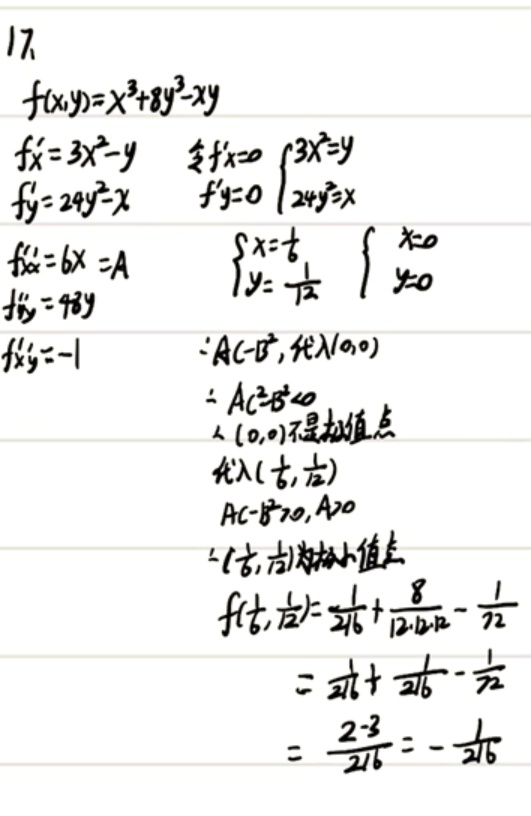 17.
f(x,y)=x³+8y³-xy
f'x=3x²-y 令f'x=0 {3x²=y
f'y=24y²-x f'y=0 24y²=x
f''xx=6x=A {x=1/6 { x=0
f''yy=48y y=1/12 y=0
f''xy=-1 ∵AC-B²,代入(0,0)
∴AC²-B²<0
∴(0,0)不是极值点
代入(1/6,1/12)
AC-B²>0,A>0
∴(1/6,1/12)为极小值点
f(1/6,1/12)=1/216+8/12·12·12-1/72
=1/216+1/216-1/72
=2-3/216=-1/216